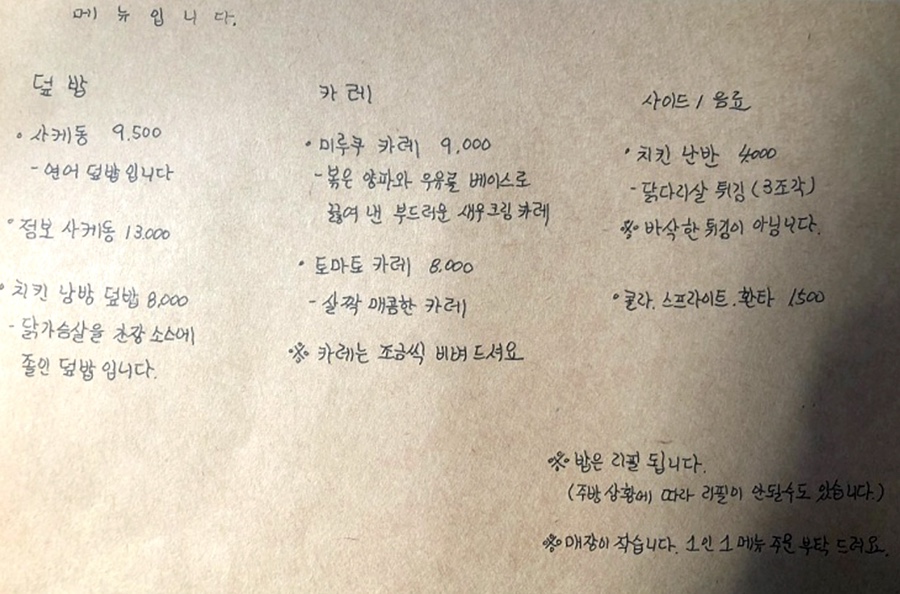 메 뉴 입 니 다.
덮 밥
• 사케동 9.500
- 연어 덮밥입니다
• 점보 사케동 13.000
• 치킨 낭방 덮밥 8,000
- 닭가슴살을 간장 소스에
졸인 덮밥 입니다.
카 레
• 미루쿠 카레 9,000
- 볶은 양파와 우유를 베이스로
끓여 낸 부드러운 새우크림 카레
• 토마토 카레 8.000
- 살짝 매콤한 카레
※ 카레는 조금씩 비벼 드셔요
사이드 / 음료
• 치킨 난반 4000
- 닭다리살 튀김 (3조각)
※ 바삭한 튀김이 아닙니다.
• 콜라. 스프라이트. 환타 1500
※ 밥은 리필 됩니다.
(주방 상황에 따라 리필이 안될수도 있습니다.)
※ 매장이 작습니다. 1인 1메뉴 주문 부탁 드려요.